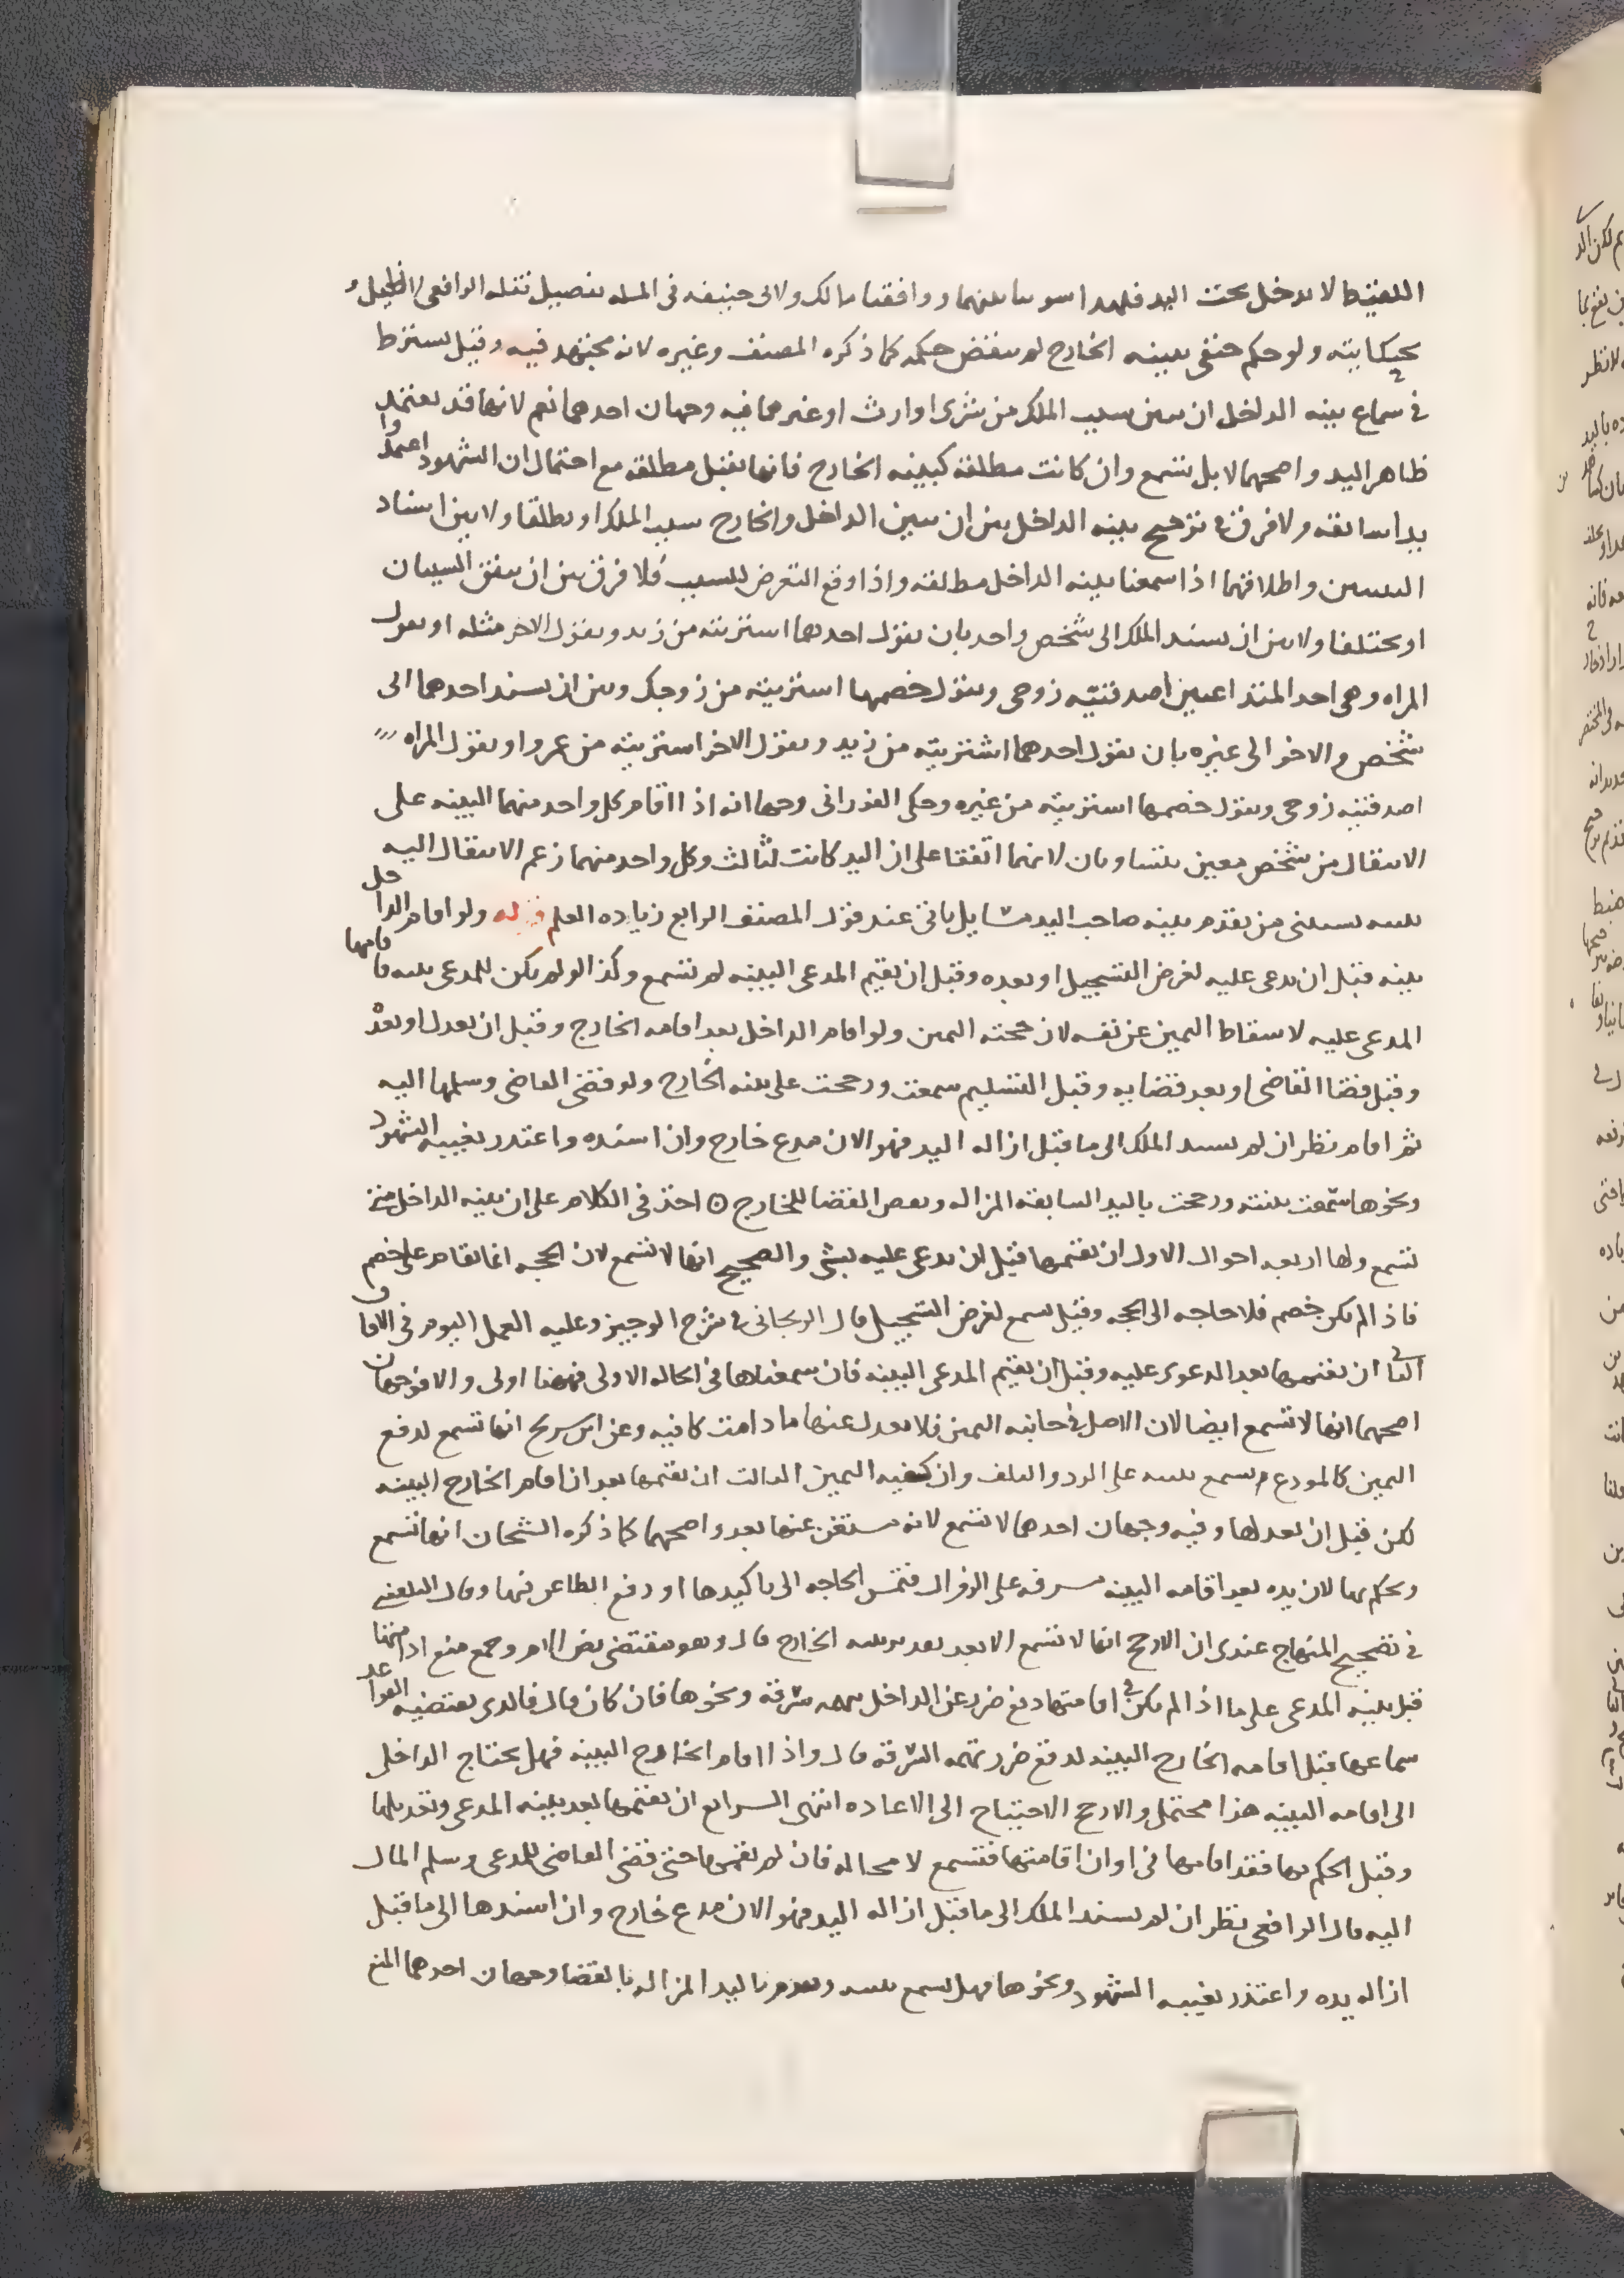 اللقيط لا يدخل تحت اليد فلهذا سوينا بينهما ووافقنا مالك ولابي حنيفه في المسله تفصيل نقله الرافعي لا نطيل
بحكايته ولو حكم حنفي ببينه الخارج لم ينقض حكمه كما ذكره المصنف وغيره لانه مجتهد فيه وقيل يشترط
في سماع بينه الداخل ان يبين سبب الملك من شرى او ارث او غيرهما فيه وجهان احدهما نعم لانها قد يعتمد
ظاهر اليد واصحهما لا بل تسمع وان كانت مطلقة كبينه الخارج فانها تقبل مطلقة مع احتمال ان الشهود اعتمدوا
يدا سابقه ولا فرق في ترجيح بينه الداخل بين ان يبين الداخل والخارج سبب الملك او يطلقا ولا بين اسناد
البينتين واطلاقهما اذا سمعنا بينه الداخل مطلقه واذا وقع التعرض للسبب فلا فرق بين ان يتفق السببان
او يختلفا ولا بين ان يسند الملك الى شخص واحد بان يقول احدهما اشتريته من زيد ويقول الاخر مثله او يقول
المراه وهي احد المتداعيين اصدقنيه زوجي ويقول خصمها اشتريته من زوجك وبين ان يسند احدهما الى
شخص والاخر الى غيره بان يقول احدهما اشتريته من زيد ويقول الاخر اشتريته من عمرو او يقول المراه
اصدقنيه زوجي ويقول خصمها اشتريته من غيره وحكى الفوراني وجها انه اذا اقام كل واحد منهما البينه على
الانتقال من شخص معين يتساويان لانهما اتفقا على ان اليد كانت لثالث وكل واحد منهما زعم الانتقال اليه
تنبيه يستثنى من تقدم بينه صاحب اليد مسايل ياتي عند قول المصنف الرابع زياده العلم قوله ولو اقام الداخل
بينه قبل ان يدعى عليه لغرض التسجيل او بعده وقبل ان يقيم المدعي البينه لم تسمع وكذا لو لم يكن للمدعي بينه فاقامها
المدعى عليه لاسقاط اليمين عن نفسه لان حجته اليمين ولو اقام الداخل بعد اقامه الخارج وقبل ان يعدل او بعده
وقبل قضا القاضي او بعد قضايه وقبل التسليم سمعت ورجحت على بينه الخارج ولو قضى القاضي وسلمها اليه
ثم اقام نظر ان لم يسند الملك الى ما قبل ازاله اليد فهو الان مدع خارج وان اسنده واعتذر بغيبه الشهود
ونحوها سمعت بينته ورجحت باليد السابقة المزاله ونقض القضا للخارج ⊙ اخذ في الكلام على ان بينه الداخل متى
تسمع ولها اربعه احوال الاول ان يقيمها قبل ان يدعى عليه بشي والصحيح انها لا تسمع لان الحجه انما تقام على خصم
فاذا لم يكن خصم فلا حاجه الى الحجه وقيل تسمع لغرض التسجيل قال الريحاني في شرح الوجيز وعليه العمل اليوم في الافاق
الثاني ان يقيمها بعد الدعوى عليه وقبل ان يقيم المدعي البينه فان سمعناها في الحاله الاولى فههنا اولى والا فوجهان
اصحهما انها لا تسمع ايضا لان الاصل في جانبه اليمين فلا يعدل عنها ما دامت كافيه وعن ابن سريج انها تسمع لدفع
اليمين كالمودع تسمع بينته على الرد والتلف وان كفيه اليمين الثالث ان يقيمها بعد ان اقام الخارج البينه
لكن قبل ان يعدلها وفيه وجهان احدهما لا تسمع لانه مستغن عنها بعد واصحهما كما ذكره الشيخان انها تسمع
ويحكم بها لان يده بعد اقامه البينه مشرفه على الزوال فتمس الحاجه الى تاكيدها او دفع الطاعن فيها وقال البلقيني
في تصحيح المنهاج عندي ان الارجح انها لا تسمع الا بعد تعديل بينه الخارج قال وهو مقتضى نص الام وجمع منع اقامتها
قبل بينه المدعي على ما اذا لم يكن في اقامتها دفع ضرر عن الداخل بتهمه سرقة ونحوها فان كان قال فالذي يقتضيه القواعد
سماعها قبل اقامه الخارج البينه لدفع ضرر تهمه السرقة قال واذا اقام الخارج البينه فهل يحتاج الداخل
الى اقامه البينه هذا محتمل والارجح الاحتياج الى الاعاده انتهى الرابع ان يقيمها بعد بينه المدعي وتعديلها
وقبل الحكم بها فقد اقامها في اوان اقامتها فتسمع لا محاله فان لم يقمها حتى قضى القاضي للمدعي وسلم المال
اليه قال الرافعي ينظر ان لم يسند الملك الى ما قبل ازاله اليد فهو الان مدع خارج وان اسندها الى ما قبل
ازاله يده واعتذر بغيبه الشهود ونحوها فهل تسمع بينته وتقدم باليد المزاله بالقضا وجهان احدهما المنع